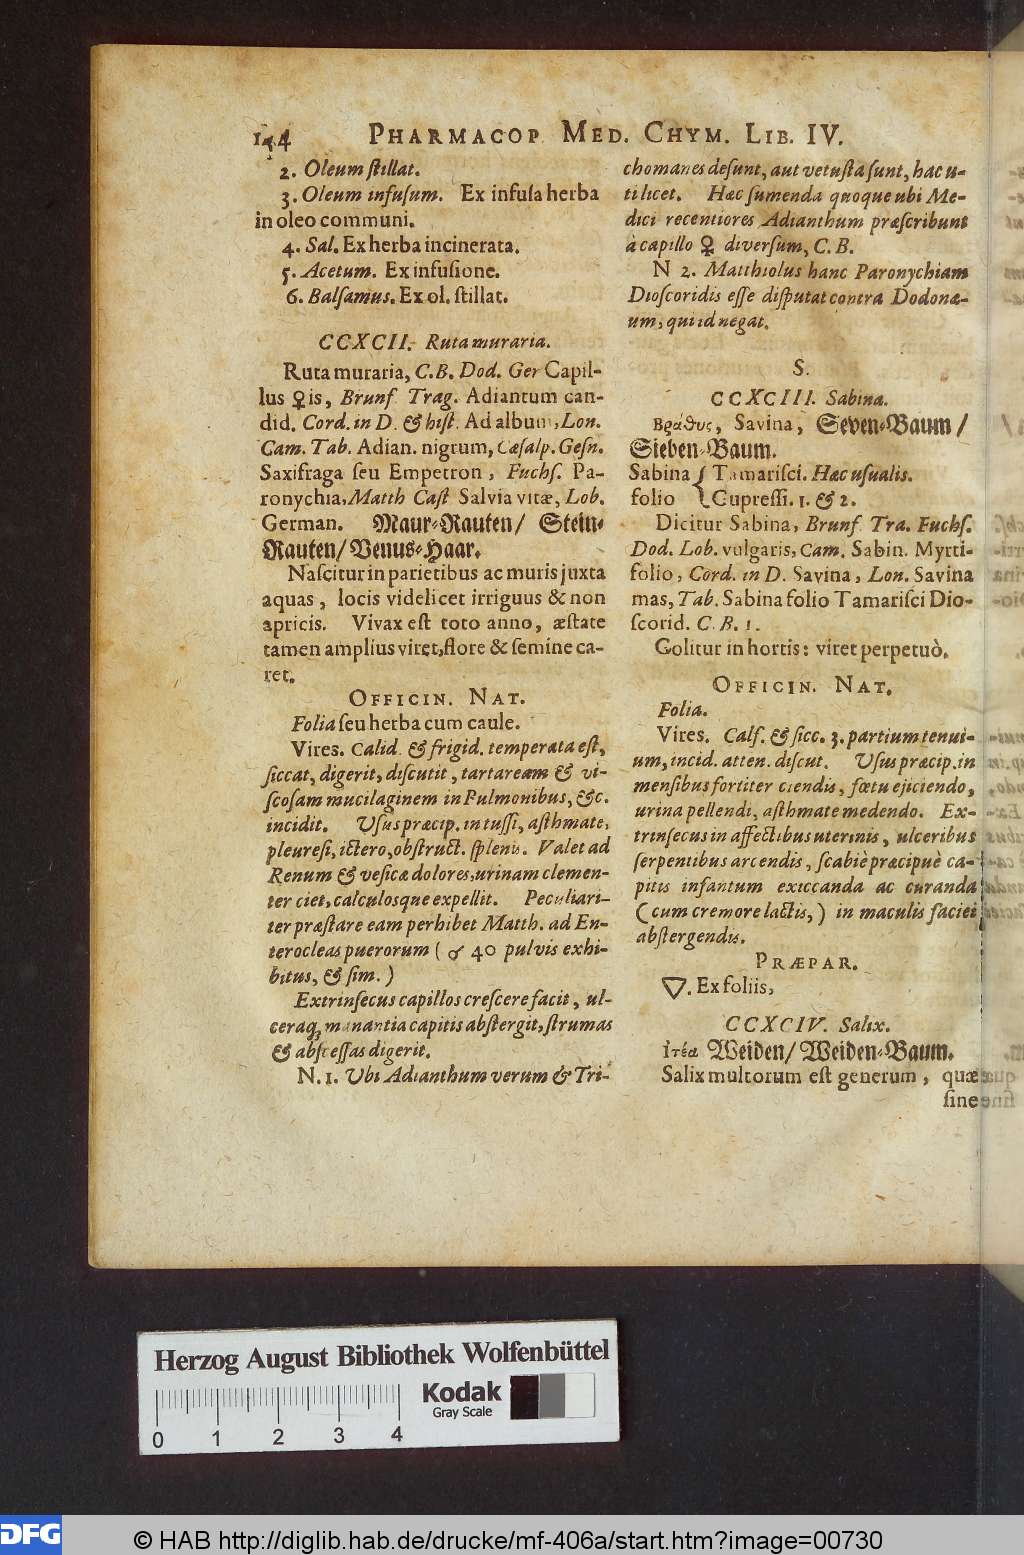 PHARMACOP. MED. CHYM. LIB. IV.
2. Oleum ſtillat.
3. Oleum infuſum. Ex infuſa herba
in oleo communi.
4. Sal. Ex herba incinerata.
5. Acetum. Ex infuſione.
6. Balſamus. Ex ol. ſtillat.
CCXCII. Ruta muraria.
Ruta muraria, C.B. Dod. Ger Capil-
lus ♀is, Brunf Trag. Adiantum can-
did. Cord. in D. & hiſt. Ad album, Lon.
Cam. Tab. Adian. nigrum, Cæſalp. Geſn.
Saxifraga ſeu Empetron, Fuchſ. Pa-
ronychia, Matth Caſt Salvia vitæ, Lob.
German. Maur-Rauten/ Stein-
Rauten/ Venus-Haar.
Naſcitur in parietibus ac muris juxta
aquas, locis videlicet irriguus & non
apricis. Vivax eſt toto anno, æſtate
tamen amplius viret, flore & ſemine ca-
ret.
OFFICIN. NAT.
Folia ſeu herba cum caule.
Vires. Calid. & frigid. temperata eſt,
ſiccat, digerit, diſcutit, tartaream & vi-
ſcoſam mucilaginem in Pulmonibus, &c.
incidit. Uſus præcip. in tuſſi, aſthmate,
pleureſi, ictero, obſtruct. ſplenis. Valet ad
Renum & veſicæ dolores, urinam clemen-
ter ciet, calculosque expellit. Peculiari-
ter præſtare eam perhibet Matth. ad En-
terocleas puerorum ( ♂ 40 pulvis exhi-
bitus, & ſim. )
Extrinſecus capillos creſcere facit, ul-
ceraq; manantia capitis abſtergit, ſtrumas
& abſceſſas digerit.
N. 1. Ubi Adianthum verum & Tri-
chomanes deſunt, aut vetuſta ſunt, hac u-
ti licet. Hæc ſumenda quoque ubi Me-
dici recentiores Adianthum præſcribunt
à capillo ♀ diverſum, C. B.
N 2. Matthiolus hanc Paronychiam
Dioſcoridis eſſe diſputat contra Dodonæ-
um, qui id negat.
S.
CCXCIII. Sabina.
Βράθυς, Savina, Seven-Baum/
Sieben-Baum.
Sabina { Tamariſci. Hæc uſualis.
folio { Cupreſſi. 1. & 2.
Dicitur Sabina, Brunf Tra. Fuchſ.
Dod. Lob. vulgaris, Cam. Sabin. Myrti-
folio, Cord. in D. Savina, Lon. Savina
mas, Tab. Sabina folio Tamariſci Dio-
ſcorid. C. B. 1.
Colitur in hortis: viret perpetuò.
OFFICIN. NAT.
Folia.
Vires. Calf. & ſicc. 3. partium tenui-
um, incid. atten. diſcut. Uſus præcip. in
menſibus fortiter ciendis, fœtu ejiciendo,
urina pellendi, aſthmate medendo. Ex-
trinſecus in affectibus uterinis, ulceribus
ſerpentibus arcendis, ſcabiè præcipuè ca-
pitis infantum exiccanda ac curanda
( cum cremore lactis, ) in maculis faciei
abſtergendis.
PRÆPAR.
▽. Ex foliis,
CCXCIV. Salix.
ἰτέα Weiden/ Weiden-Baum.
Salix multorum eſt generum, quæ
ſine
Herzog August Bibliothek Wolfenbüttel
Kodak
Gray Scale
0 1 2 3 4
DFG © HAB http://diglib.hab.de/drucke/mf-406a/start.htm?image=00730